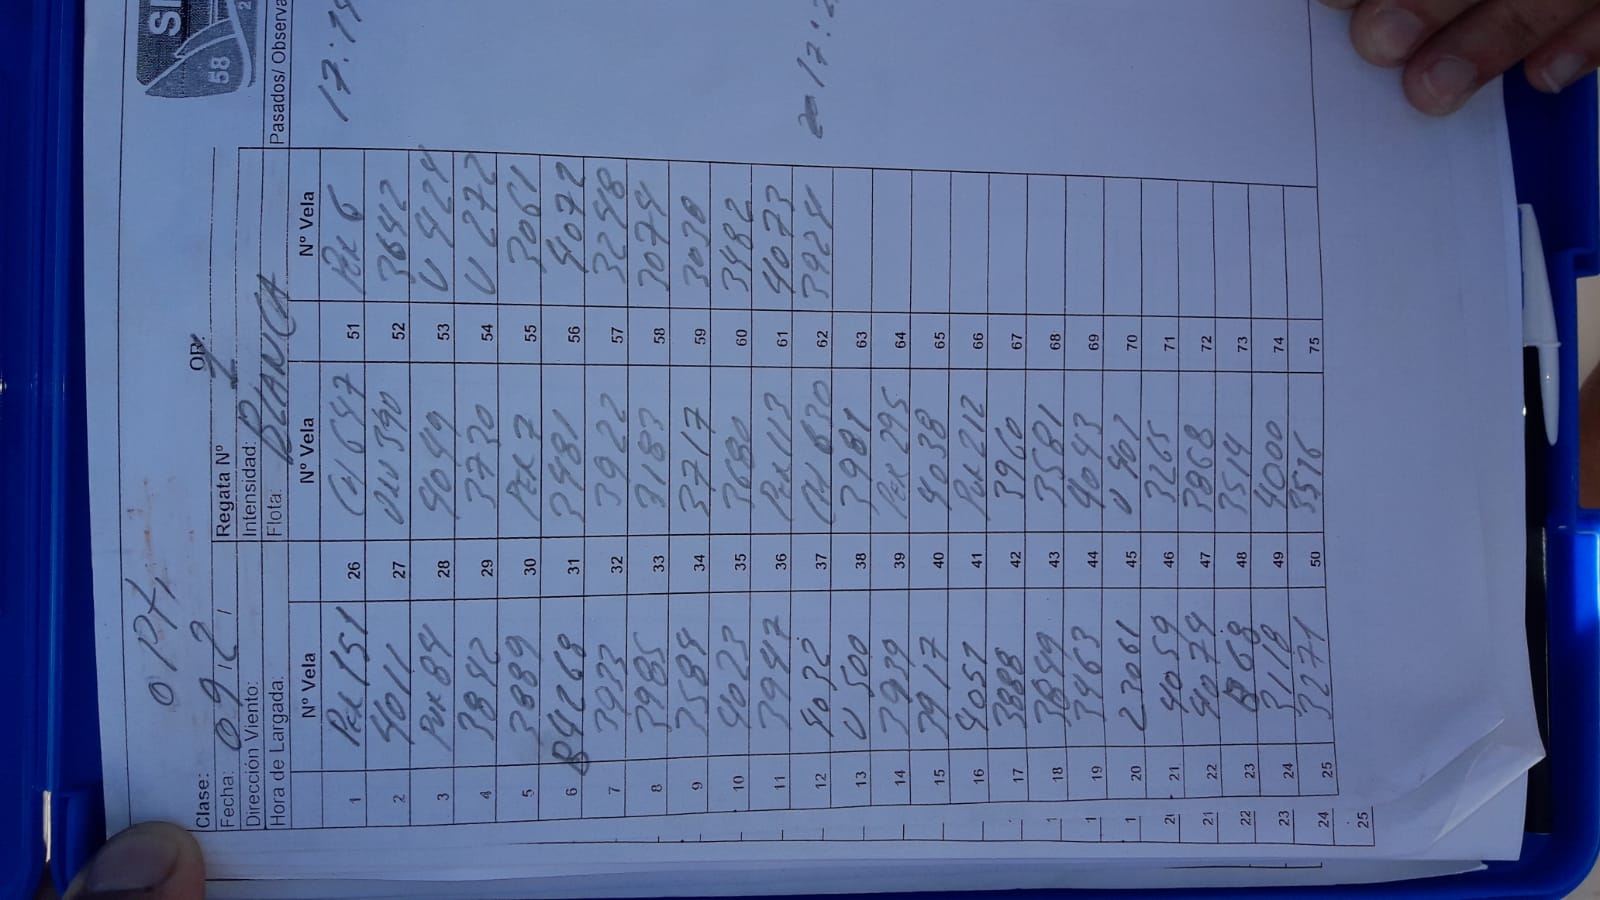 OPti
Clase:
OR:
Fecha: 09/2/
Regata Nº 1
Dirección Viento:
Intensidad:
Hora de Largada:
Flota: BLANCA
Pasados/ Observa
58
Nº Vela Nº Vela Nº Vela
1 PER 151 26 CH 647 51 PER 6
17:14
2 4011 27 URU 390 52 3642
3 PUR 84 28 4049 53 U 424
4 3842 29 3730 54 U 272
5 3889 30 PER 7 55 3061
6 B4268 31 3481 56 4072
7 3933 32 3922 57 3248
8 3985 33 3183 58 3074
9 3584 34 3717 59 3030
10 4023 35 3680 60 3482
11 3947 36 PER 113 61 4073
12 4032 37 CH 630 62 3924
17:2
13 U 500 38 3981 63
14 3939 39 PER 295 64
15 3917 40 4038 65
16 4051 41 PUR 212 66
17 3888 42 3960 67
18 3849 43 3581 68
19 3463 44 4043 69
20 23061 45 U 407 70
21 4059 46 3265 71
22 4074 47 3868 72
23 68 48 3514 73
24 3118 49 4000 74
25 3271 50 3516 75
21
22
23
24
25